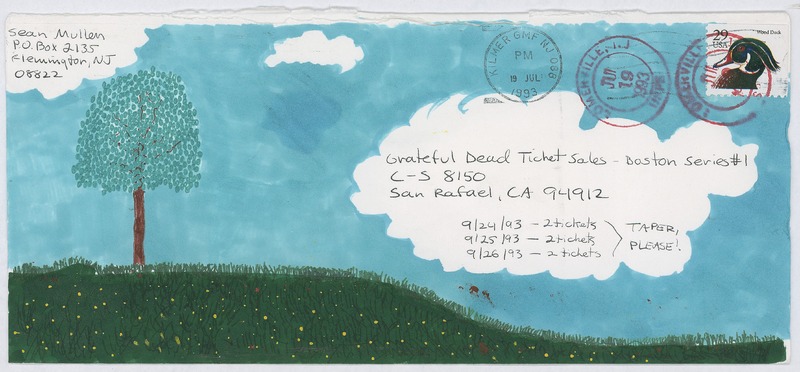 Sean Mullen
P.O. Box 2135
Flemington, NJ
08822
KILMER GMF NJ 088
PM
19 JUL
1993
SOMERVILLE, NJ
JUL
19
1993
29
USA
Wood Duck
Grateful Dead Ticket Sales - Boston Series #1
C-S 8150
San Rafael, CA 94912
9/24/93 - 2 tickets
9/25/93 - 2 tickets
9/26/93 - 2 tickets
TAPER,
PLEASE!